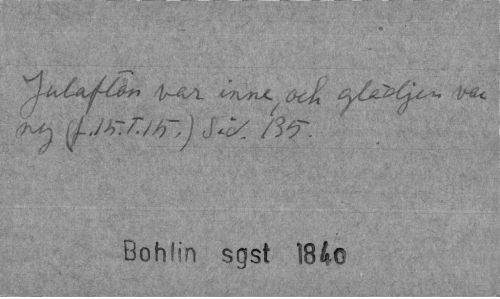 Julafton var inne, och glädjen var
ny (L.15.T.15.) Sid. 135.
Bohlin sgst 1840